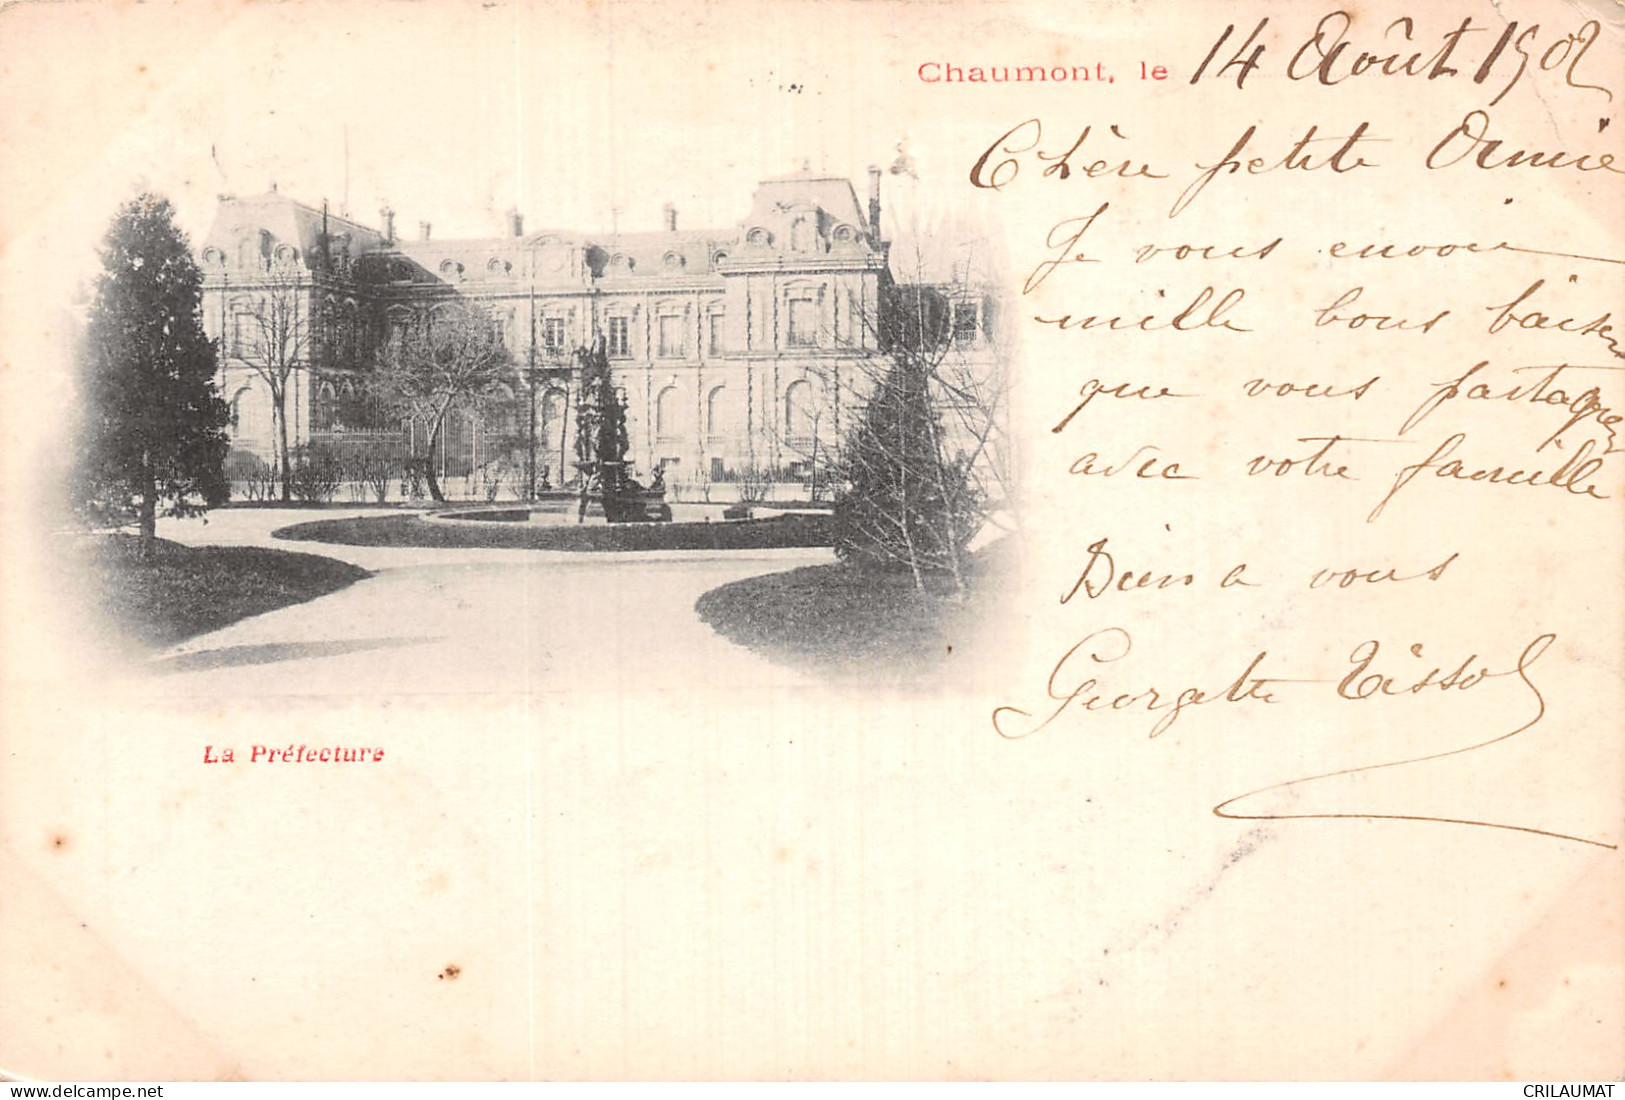 Chaumont, le 14 Août 1902
Chère petite Amie
Je vous envoie
mille bons baisers
que vous partagerez
avec votre famille
Bien a vous
Georgette Tissot
La Préfecture
CRILAUMAT